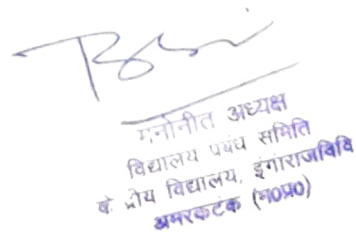 मनोनीत अध्यक्ष
विद्यालय प्रबंध समिति
केन्द्रीय विद्यालय, इंगाराजविवि
अमरकंटक (म०प्र०)